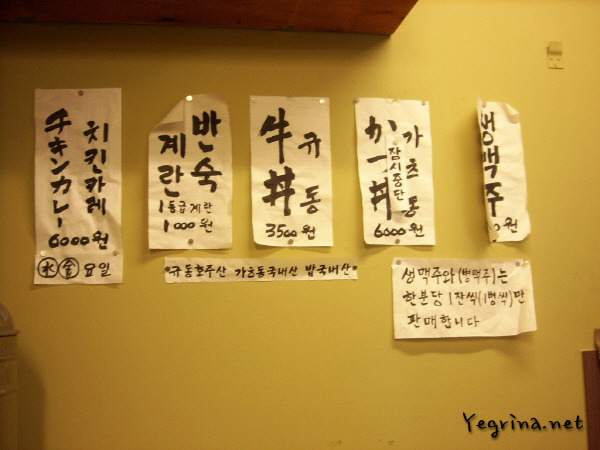 치킨카레
チキンカレー
6000원
水 金 요일
반숙
계란
1등급계란
1000원
牛丼
규동
3500원
かつ丼
가츠동
잠시중단
6000원
생맥주
0원
규동호주산 가츠동국내산 밥국내산
생맥주와(병맥주)는
한분당 1잔씩(1병씩)만
판매합니다
Yegrina.net